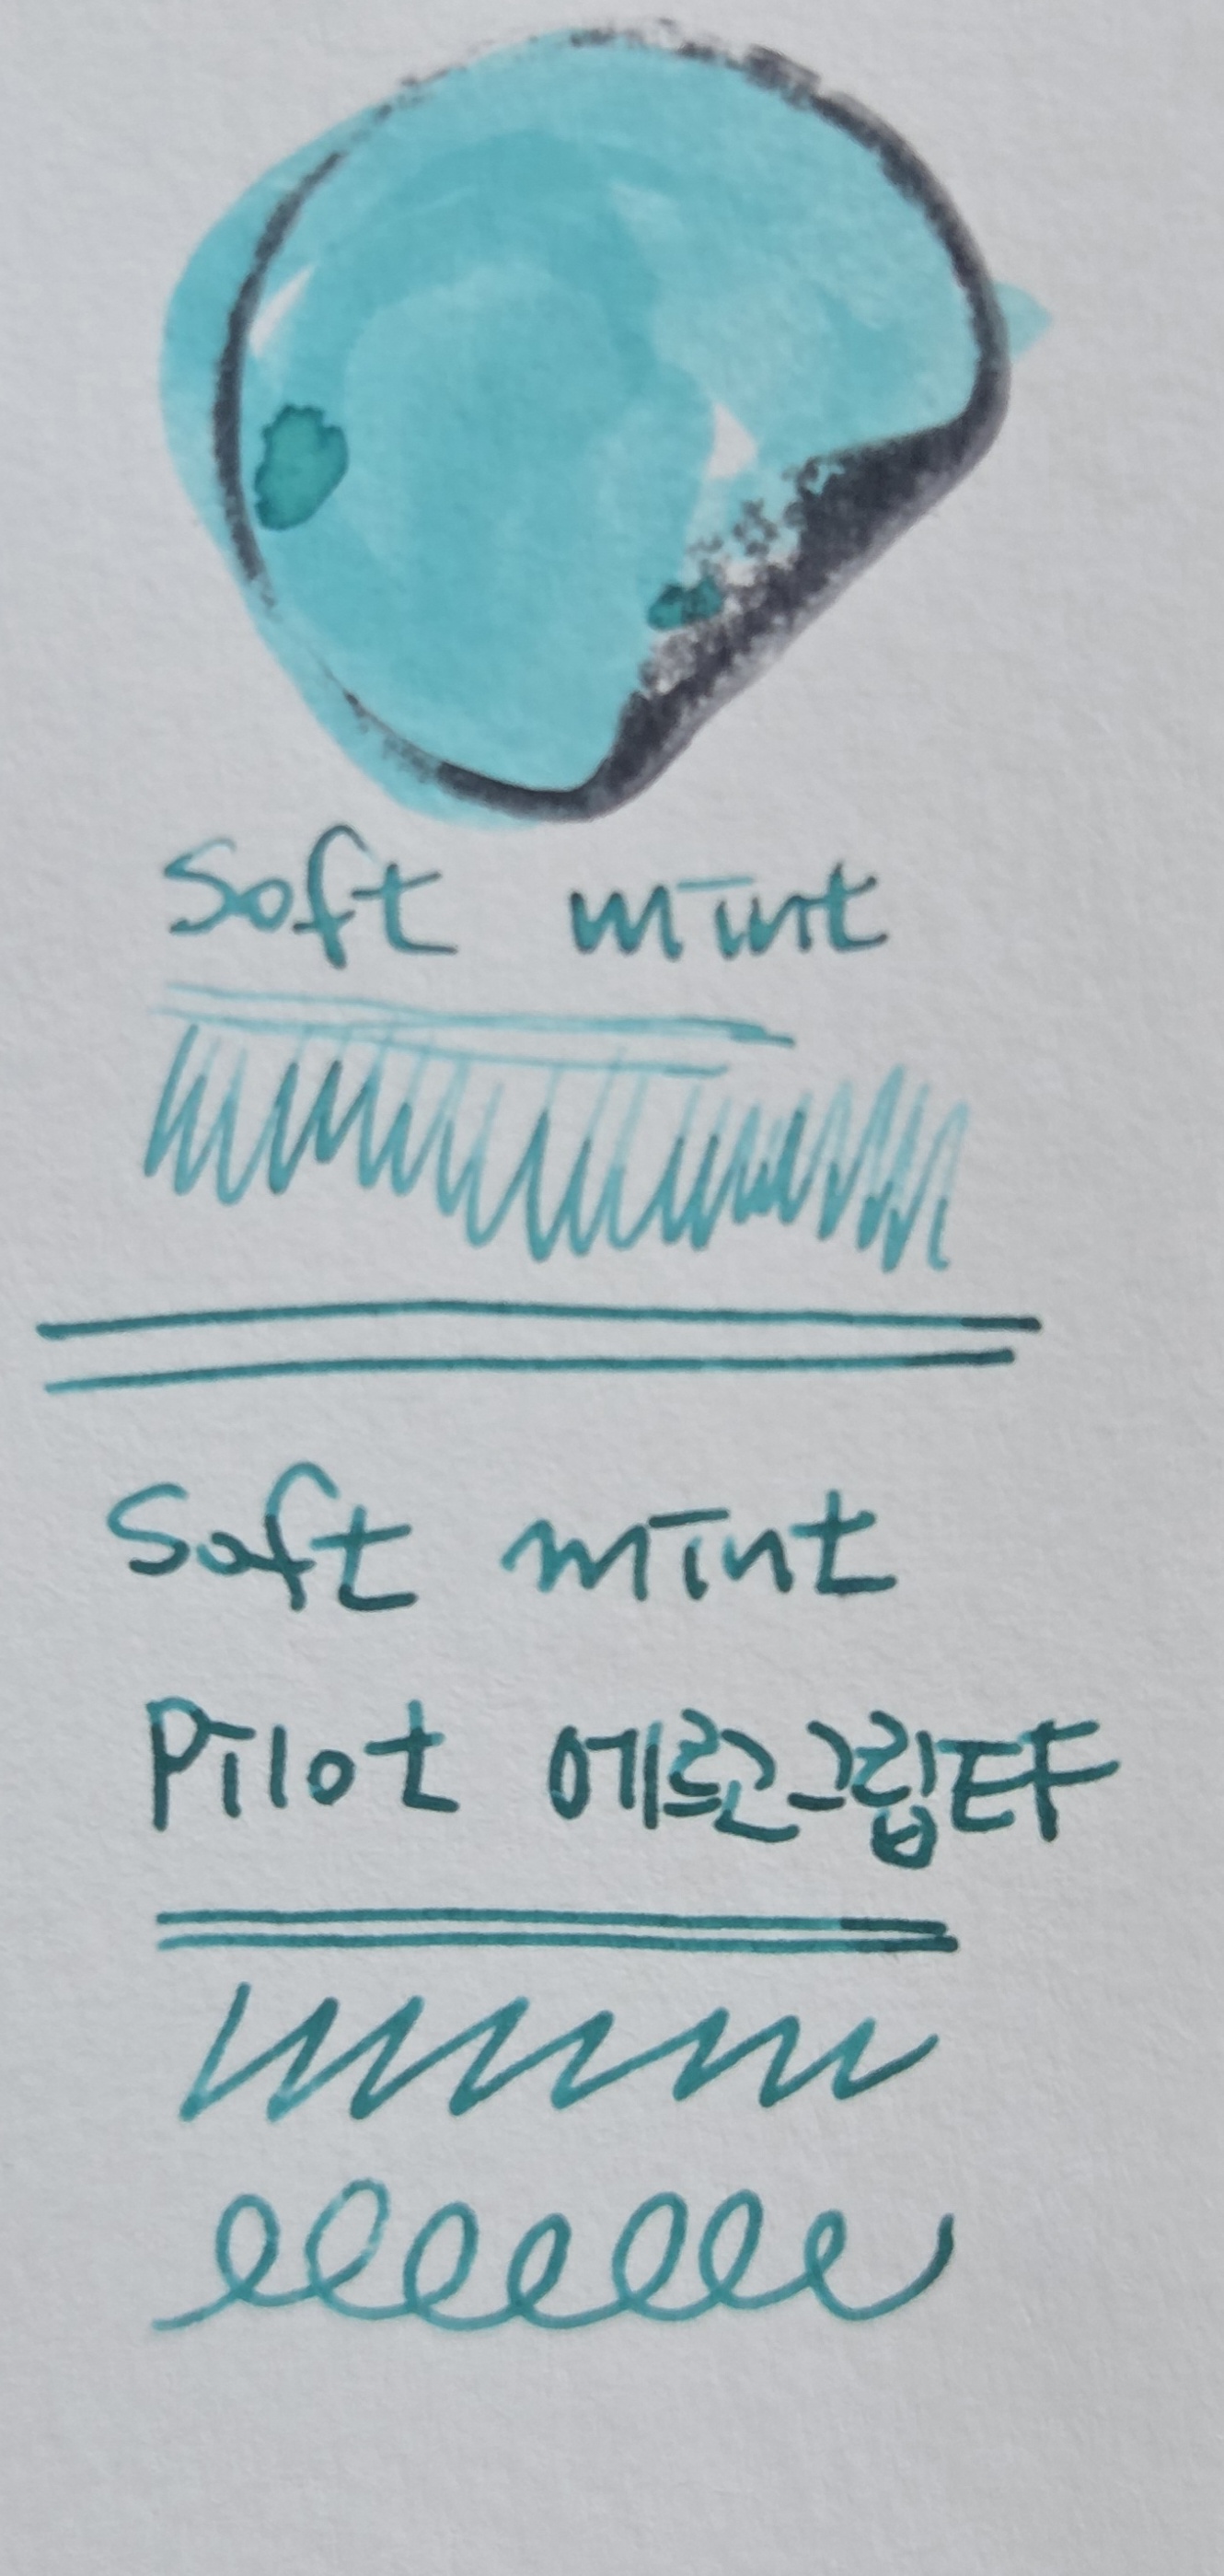 Soft mint
Soft mint
Pilot 에르고그립EF